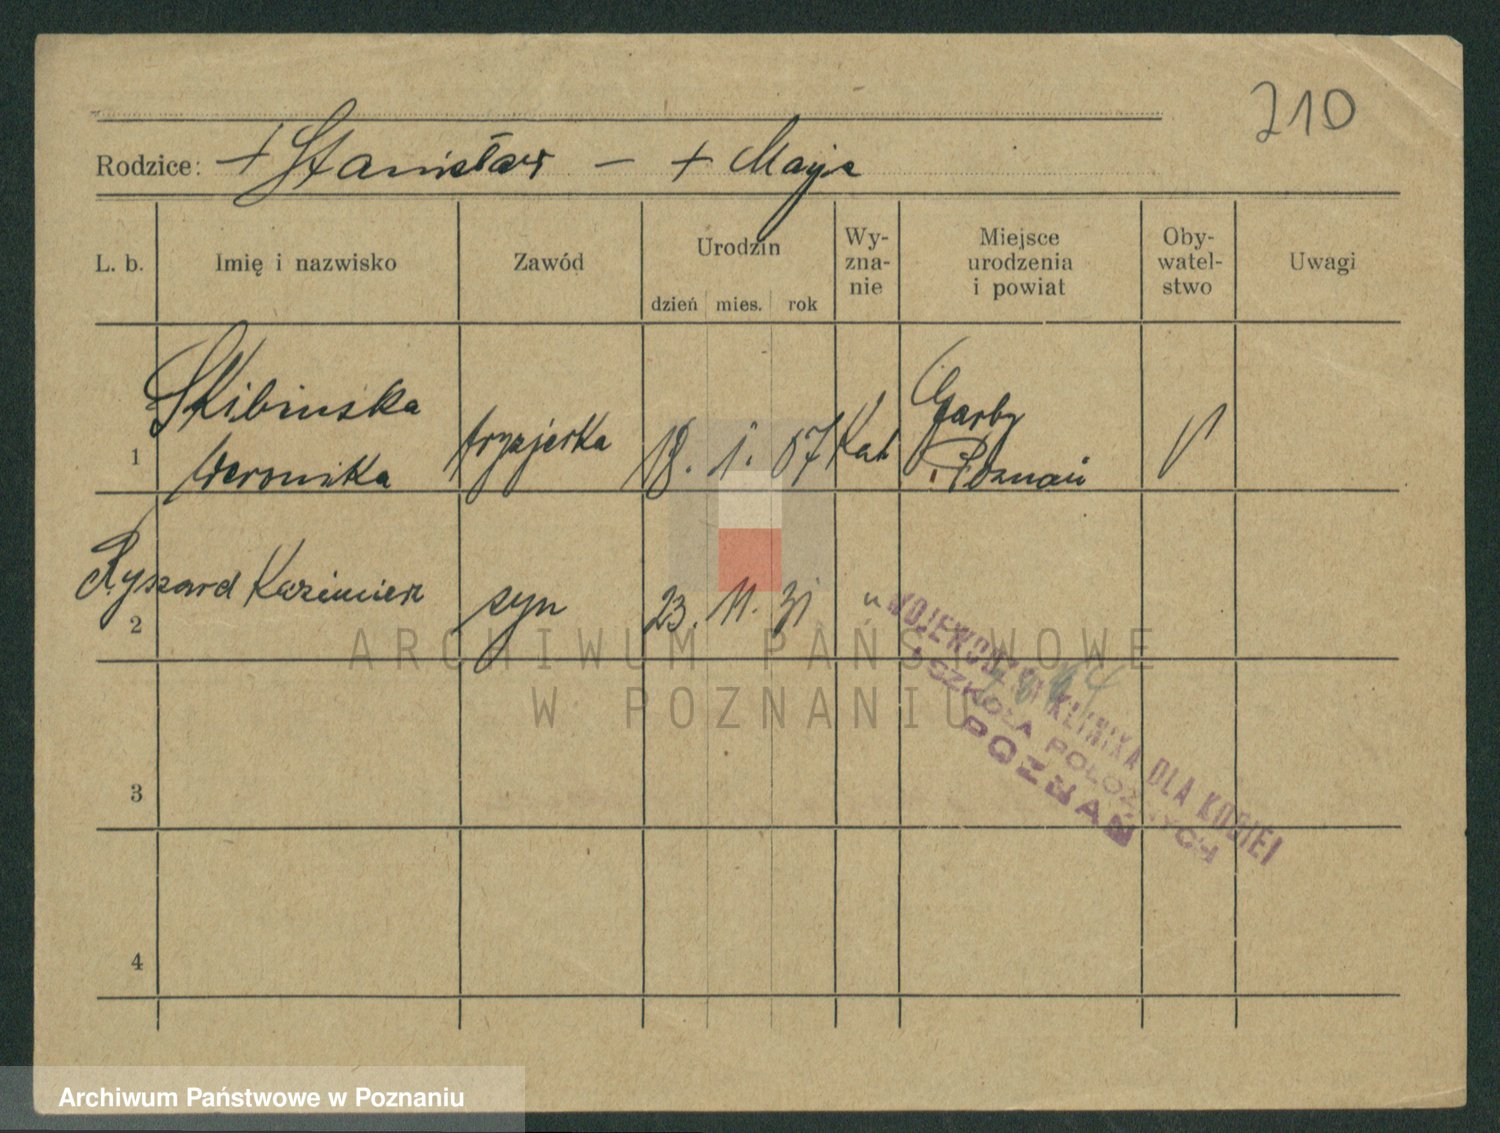 210
Rodzice: + Stanisław - + Marja
L. b. Imię i nazwisko Zawód Urodzin dzień mies. rok Wy-zna-nie Miejsce urodzenia i powiat Oby-watel-stwo Uwagi
Skibinska
Weronika
1 fryzjerka 18. 1. 07 Kat Garby
Poznań
Ryszard Kazimierz
2 syn 23. 11. 31 "
WOJEWÓDZKA KLINIKA DLA KOBIET
I SZKOŁA POŁOŻNYCH
POZNAŃ
3
4
ARCHIWUM PAŃSTWOWE
W POZNANIU
Archiwum Państwowe w Poznaniu